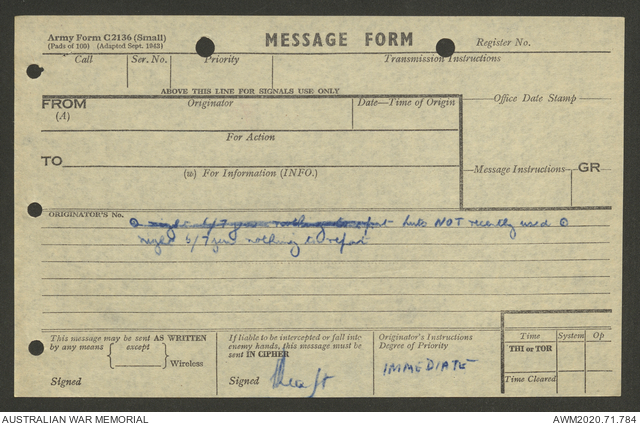 Army Form C2136 (Small)
(Pads of 100) (Adapted Sept. 1943)
MESSAGE FORM
Register No.
Call Ser. No. Priority Transmission Instructions
ABOVE THIS LINE FOR SIGNALS USE ONLY
FROM
(A)
Originator
Date—Time of Origin
Office Date Stamp
For Action
TO
(w) For Information (INFO.)
Message Instructions
GR
ORIGINATOR'S No.
night 6/7 nothing to report huts NOT recently used
night 6/7 nothing to report
This message may be sent AS WRITTEN
by any means { except }
Wireless
Signed
If liable to be intercepted or fall into
enemy hands, this message must be
sent IN CIPHER
Signed
Originator's Instructions
Degree of Priority
IMMEDIATE
Time System Op
THI or TOR
Time Cleared
AUSTRALIAN WAR MEMORIAL
AWM2020.71.784